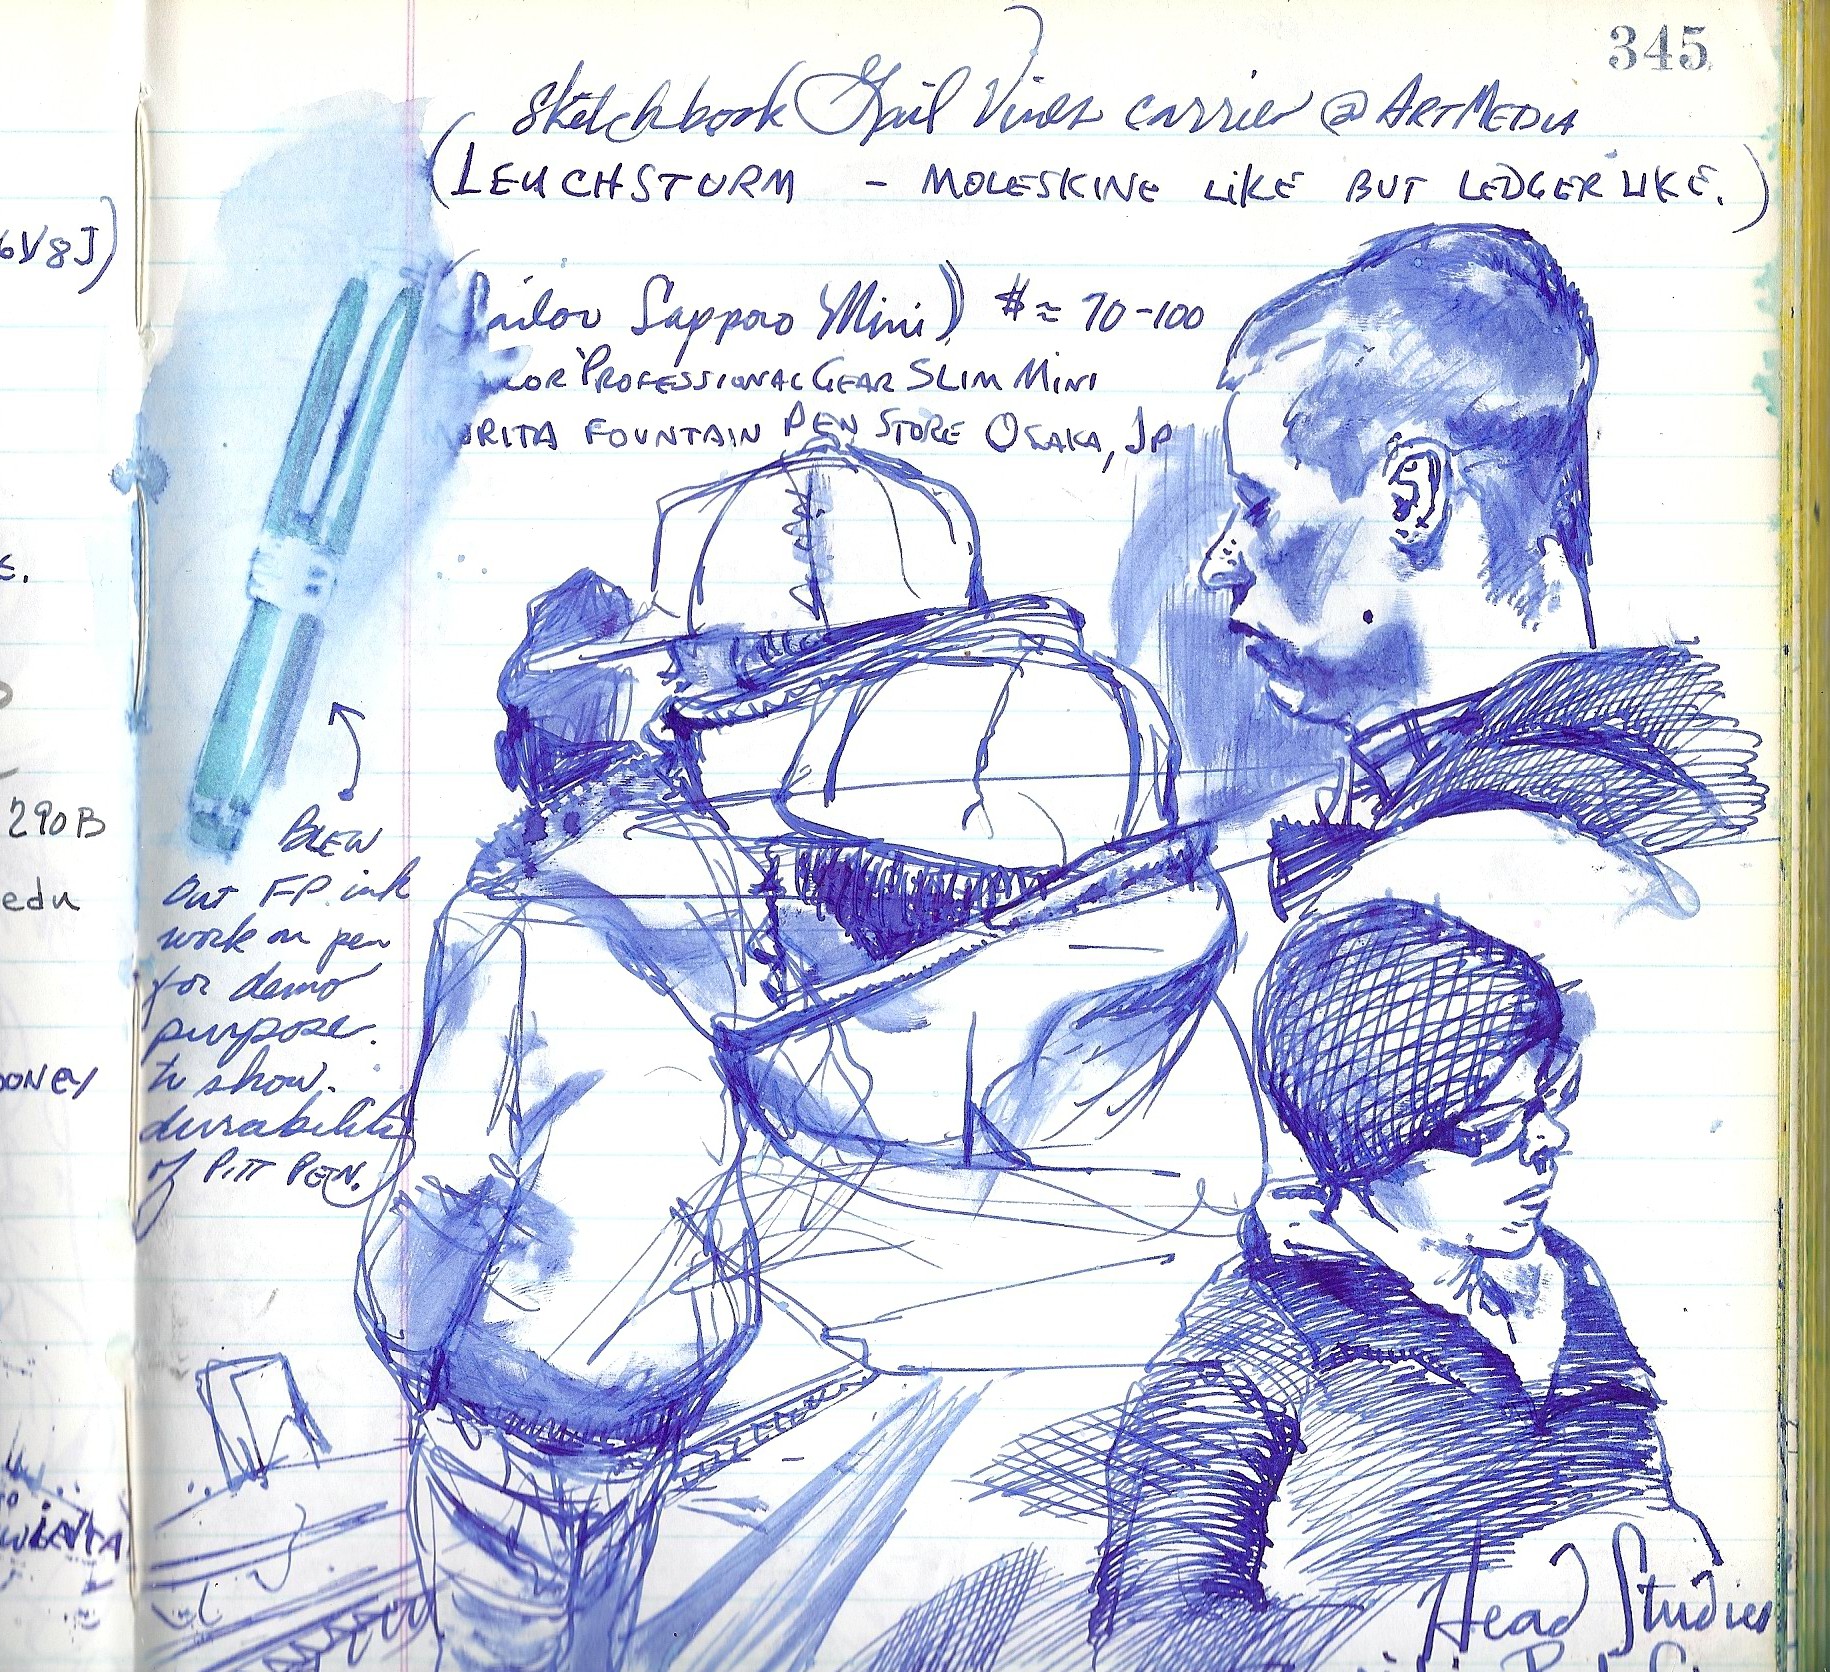 345
Sketchbook Gail Vines carries @ ARTMEDIA
(LEUCHSTURM - MOLESKINE LIKE BUT LEDGER LIKE.)
6V8J)
Sailor Sapporo Mini) $ ≈ 70-100
LOR PROFESSIONAL GEAR SLIM MINI
ORITA FOUNTAIN PEN STORE OSAKA, JP
E.
290B
edu
OONEY
BLEW
Out FP. ink
work on pen
for demo
purpose.
to show.
durability
of PITT PEN.
Head Studies